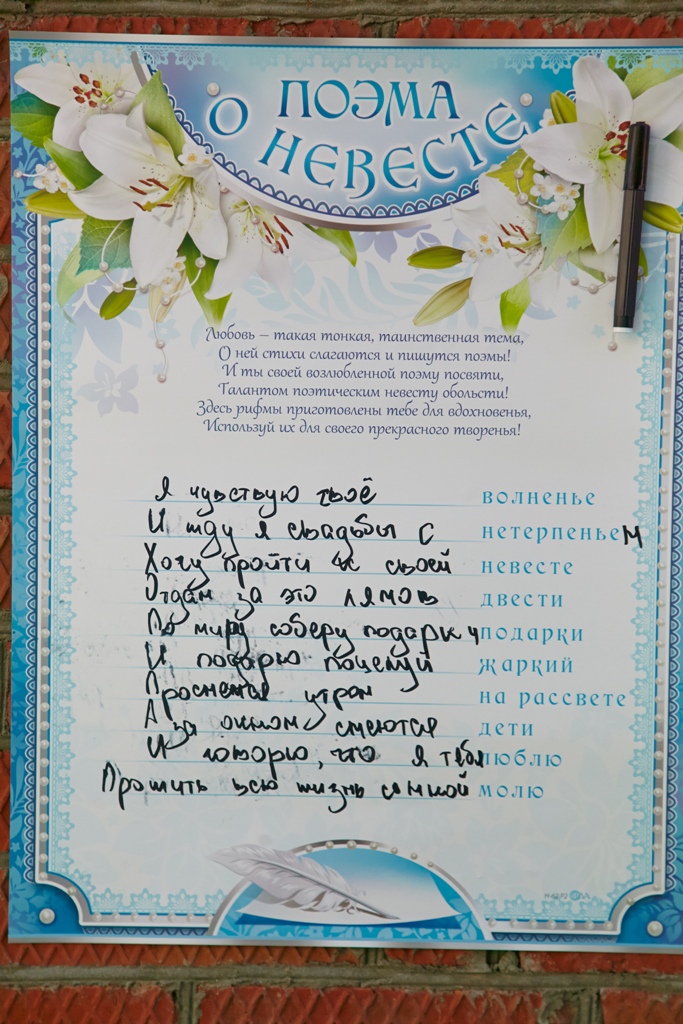 О ПОЭМА
НЕВЕСТЕ
Любовь – такая тонкая, таинственная тема,
О ней стихи слагаются и пишутся поэмы!
И ты своей возлюбленной поэму посвяти,
Талантом поэтическим невесту обольсти!
Здесь рифмы приготовлены тебе для вдохновенья,
Используй их для своего прекрасного творенья!
Я чувствую твоё волненье
И жду я свадьбы с нетерпеньем
Хочу пройти к своей невесте
Отдам за это лямов двести
По миру соберу подарки подарки
И подарю поцелуй жаркий
Проснемся утром на рассвете
А за окном смеются дети
И говорю, что я тебя люблю
Прожить всю жизнь со мной молю